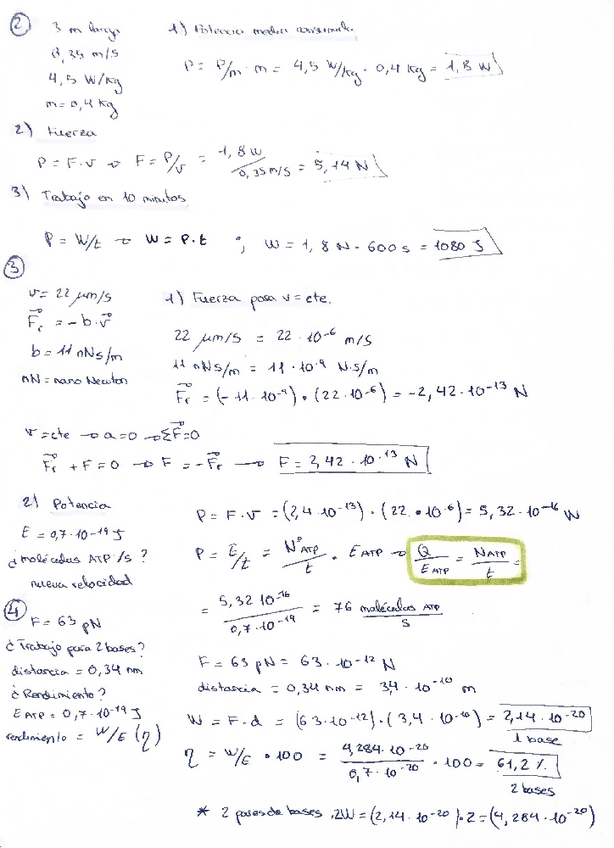 ② 3 m largo
0,35 m/s
4,5 W/kg
m = 0,4 kg
1) Potencia media consumida
P = P/m · m = 4,5 W/kg · 0,4 kg = 1,8 W
2) Fuerza
P = F·v → F = P/v = 1,8 W / 0,35 m/s = 5,14 N
3) Trabajo en 10 minutos
P = W/t → W = P·t ; W = 1,8 N · 600 s = 1080 J
③
v = 22 μm/s
F⃗r = -b·v⃗
b = 11 nNs/m
nN = nano Newton
1) Fuerza para v = cte.
22 μm/s = 22·10⁻⁶ m/s
11 nNs/m = 11·10⁻⁹ N·s/m
F⃗r = (-11·10⁻⁹)·(22·10⁻⁶) = -2,42·10⁻¹³ N
v = cte → a = 0 → ΣF⃗ = 0
F⃗r + F = 0 → F = -F⃗r → F = 2,42·10⁻¹³ N
2) Potencia
E = 0,7·10⁻¹⁹ J
¿moléculas ATP/s?
nueva velocidad
P = F·v = (2,4·10⁻¹³)·(22·10⁻⁶) = 5,32·10⁻¹⁶ W
P = E/t = N°ATP/t · EATP → Q/EATP = NATP/t =
= 5,32·10⁻¹⁶ / 0,7·10⁻¹⁹ = 76 moléculas ATP/s
④ F = 63 pN
¿Trabajo para 2 bases?
distancia = 0,34 nm
¿Rendimiento?
EATP = 0,7·10⁻¹⁹ J
rendimiento = W/E (η)
F = 63 pN = 63·10⁻¹² N
distancia = 0,34 nm = 3,4·10⁻¹⁰ m
W = F·d = (63·10⁻¹²)·(3,4·10⁻¹⁰) = 2,14·10⁻²⁰
1 base
η = W/E · 100 = 4,284·10⁻²⁰ / 0,7·10⁻²⁰ · 100 = 61,2 %
2 bases
* 2 pares de bases, 2W = (2,14·10⁻²⁰)·2 = (4,284·10⁻²⁰)